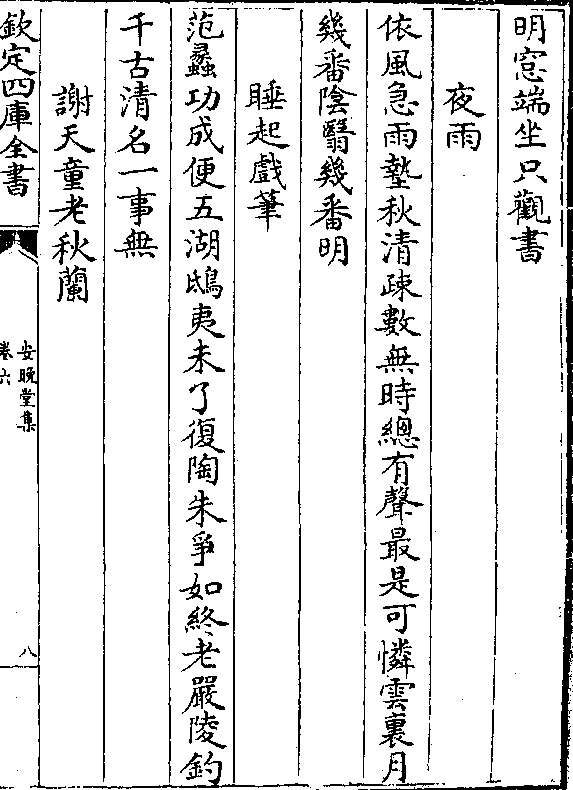 明窓端坐只觀書
夜雨
依風急雨墊秋清疎數無時總有聲最是可憐雲裏月
幾番陰翳幾番明
睡起戲筆
范蠡功成便五湖鴟夷未了復陶朱爭如終老嚴陵釣
千古清名一事無
謝天童老秋蘭
欽定四庫全書
安晚堂集
卷六
八